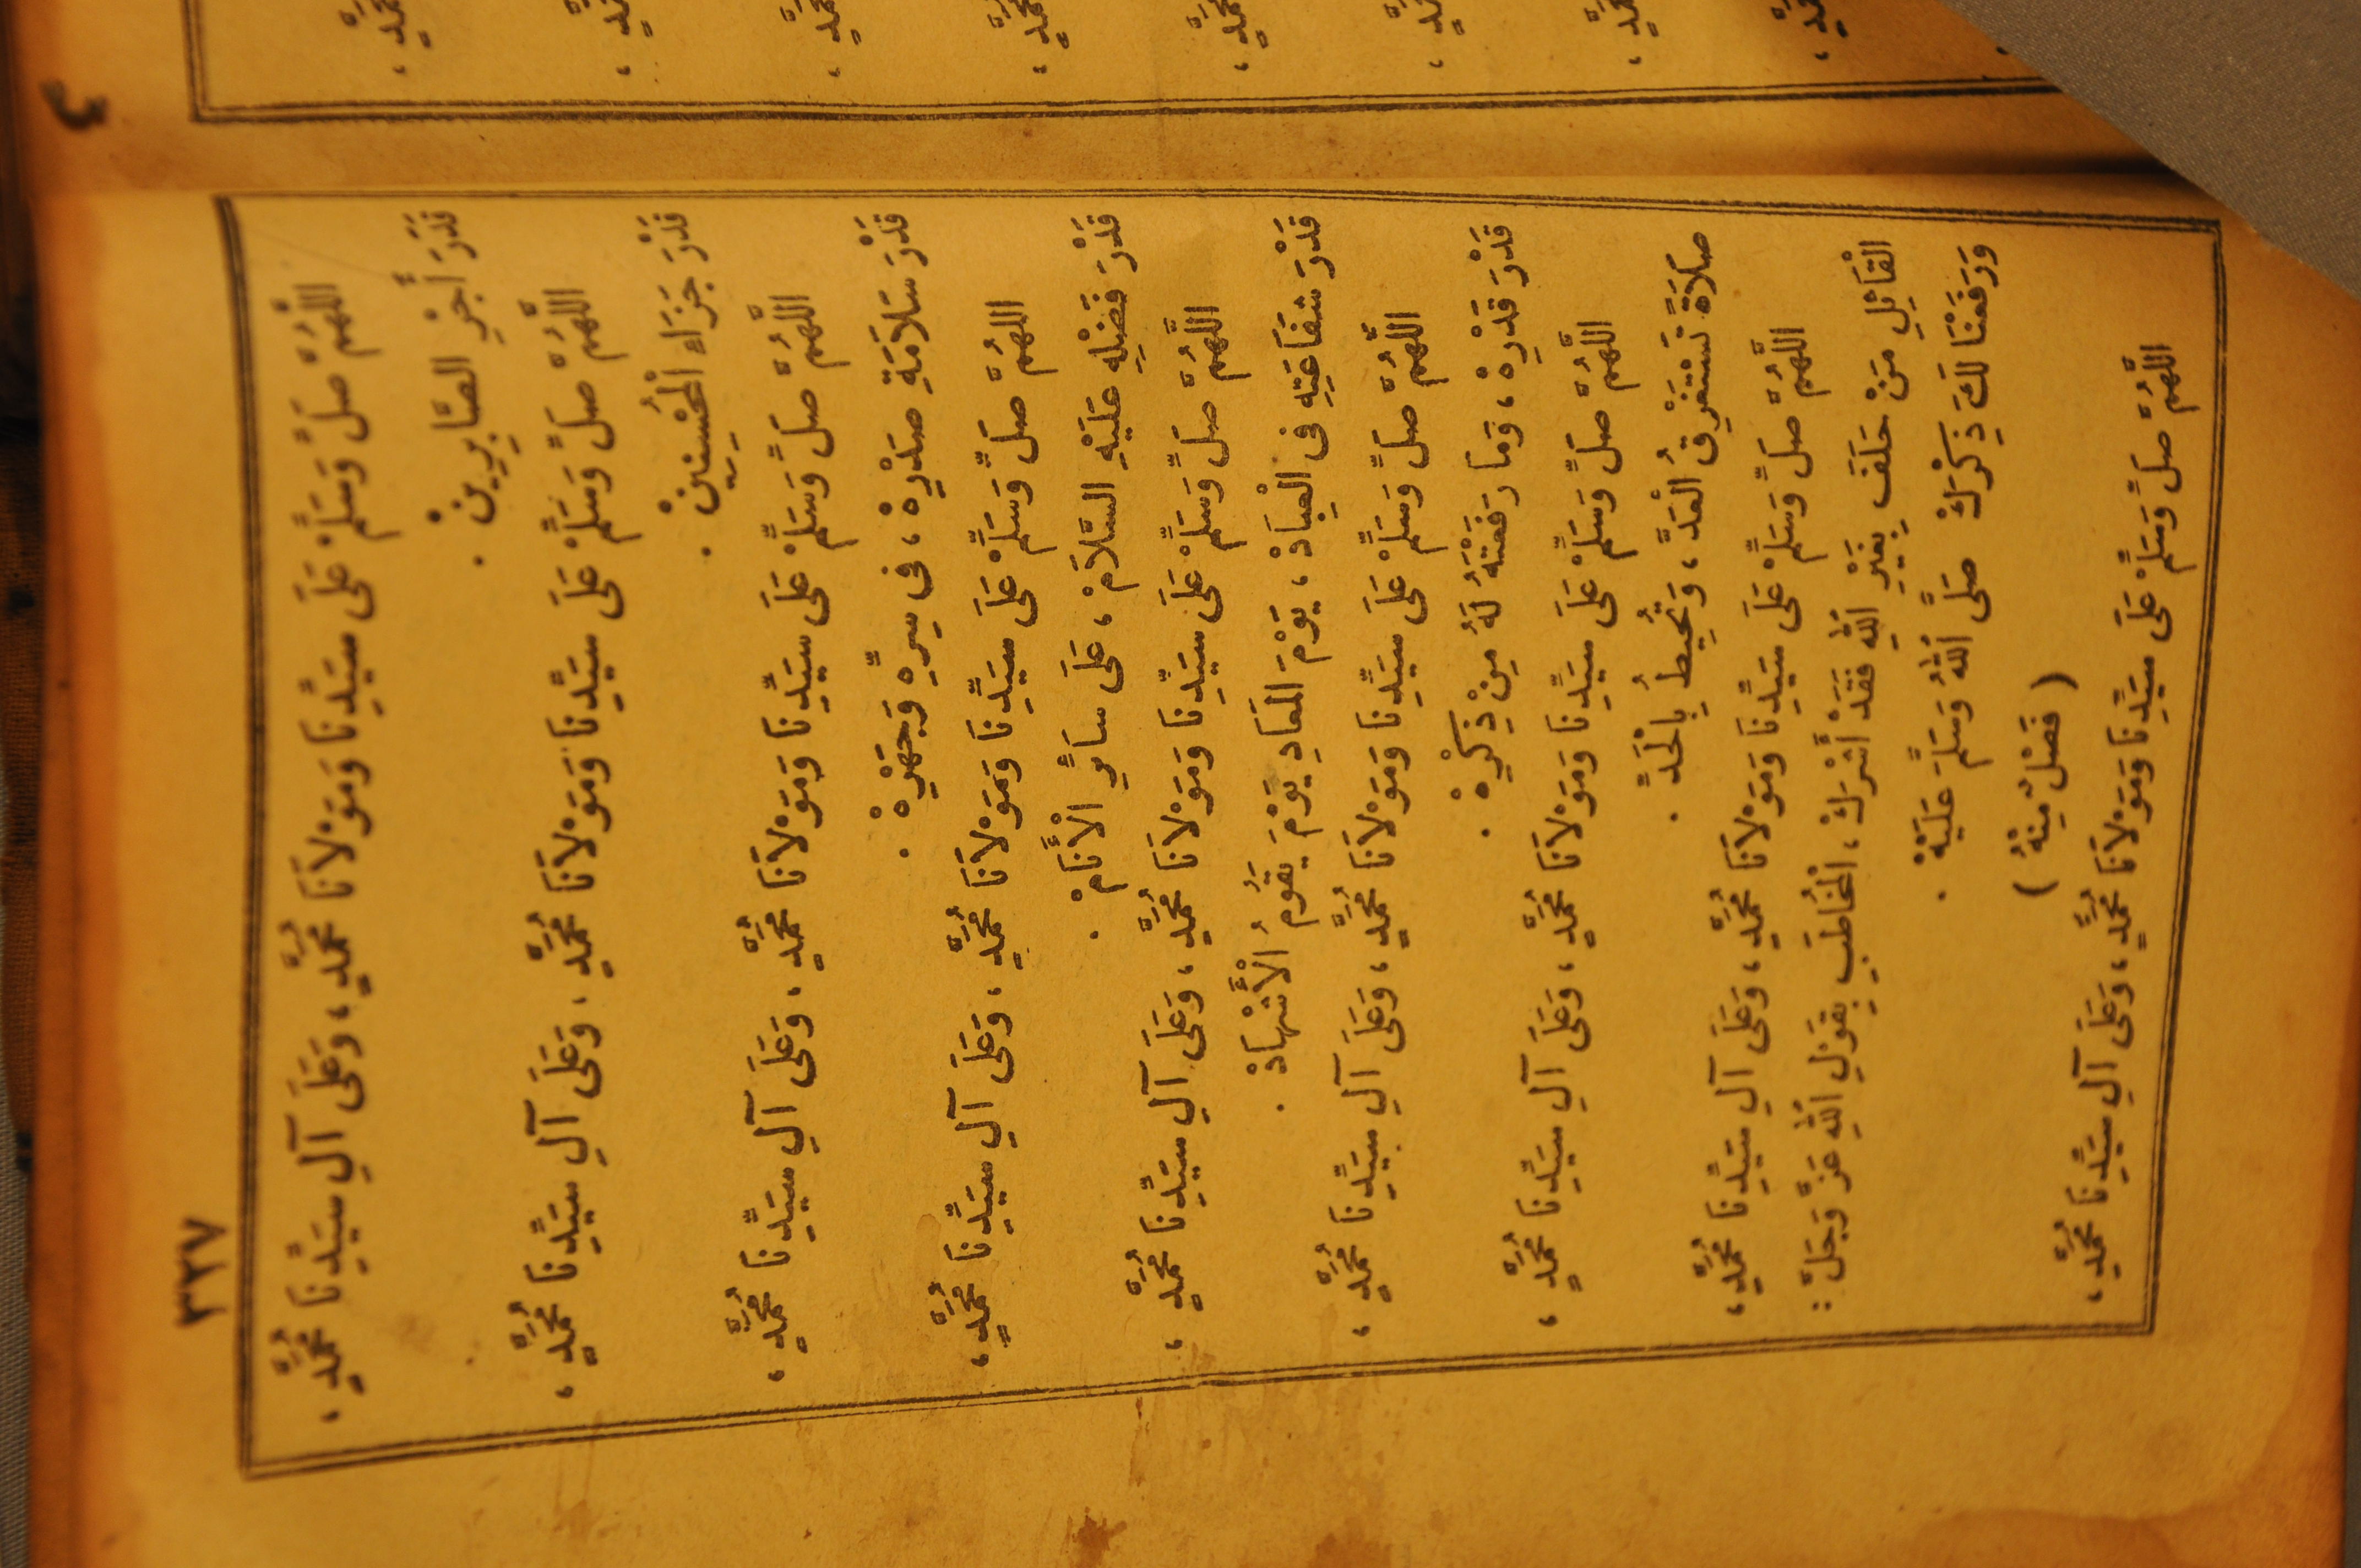 ٣٣٧
اللَّهُمَّ صَلِّ وَسَلِّمْ عَلَى سَيِّدِنَا وَمَوْلَانَا مُحَمَّدٍ، وَعَلَى آلِ سَيِّدِنَا مُحَمَّدٍ،
قَدْرَ أَجْرِ الصَّابِرِينْ.
اللَّهُمَّ صَلِّ وَسَلِّمْ عَلَى سَيِّدِنَا وَمَوْلَانَا مُحَمَّدٍ، وَعَلَى آلِ سَيِّدِنَا مُحَمَّدٍ،
قَدْرَ جَزَاءِ الْمُحْسِنِينْ.
اللَّهُمَّ صَلِّ وَسَلِّمْ عَلَى سَيِّدِنَا وَمَوْلَانَا مُحَمَّدٍ، وَعَلَى آلِ سَيِّدِنَا مُحَمَّدٍ،
قَدْرَ سَلَامَةِ صَدْرِهْ، فِى سِرِّهِ وَجَهْرِهْ.
اللَّهُمَّ صَلِّ وَسَلِّمْ عَلَى سَيِّدِنَا وَمَوْلَانَا مُحَمَّدٍ، وَعَلَى آلِ سَيِّدِنَا مُحَمَّدٍ،
قَدْرَ فَضْلِهِ عَلَيْهِ السَّلَامْ، عَلَى سَائِرِ الْأَنَامْ.
اللَّهُمَّ صَلِّ وَسَلِّمْ عَلَى سَيِّدِنَا وَمَوْلَانَا مُحَمَّدٍ، وَعَلَى آلِ سَيِّدِنَا مُحَمَّدٍ،
قَدْرَ شَفَاعَتِهِ فِى الْعِبَادْ، يَوْمَ الْمَعَادِ يَوْمَ يَقُومُ الْأَشْهَادْ.
اللَّهُمَّ صَلِّ وَسَلِّمْ عَلَى سَيِّدِنَا وَمَوْلَانَا مُحَمَّدٍ، وَعَلَى آلِ سَيِّدِنَا مُحَمَّدٍ،
قَدْرَ قَدْرِهْ، وَمَا رَفَعْتَهُ لَهُ مِنْ ذِكْرِهْ.
اللَّهُمَّ صَلِّ وَسَلِّمْ عَلَى سَيِّدِنَا وَمَوْلَانَا مُحَمَّدٍ، وَعَلَى آلِ سَيِّدِنَا مُحَمَّدٍ،
صَلَاةً تَسْتَغْرِقُ الْعَدَّ، وَتُحِيطُ بِالْحَدِّ.
اللَّهُمَّ صَلِّ وَسَلِّمْ عَلَى سَيِّدِنَا وَمَوْلَانَا مُحَمَّدٍ، وَعَلَى آلِ سَيِّدِنَا مُحَمَّدٍ،
الْقَائِلِ مَنْ حَلَفَ بِغَيْرِ اللهِ فَقَدْ أَشْرَكْ، الْمُخَاطَبِ بِقَوْلِ اللهِ عَزَّ وَجَلَّ:
وَرَفَعْنَا لَكَ ذِكْرَكْ صَلَّى اللهُ وَسَلَّمَ عَلَيْهْ.
( فَصْلٌ مِنْهُ )
اللَّهُمَّ صَلِّ وَسَلِّمْ عَلَى سَيِّدِنَا وَمَوْلَانَا مُحَمَّدٍ، وَعَلَى آلِ سَيِّدِنَا مُحَمَّدٍ،